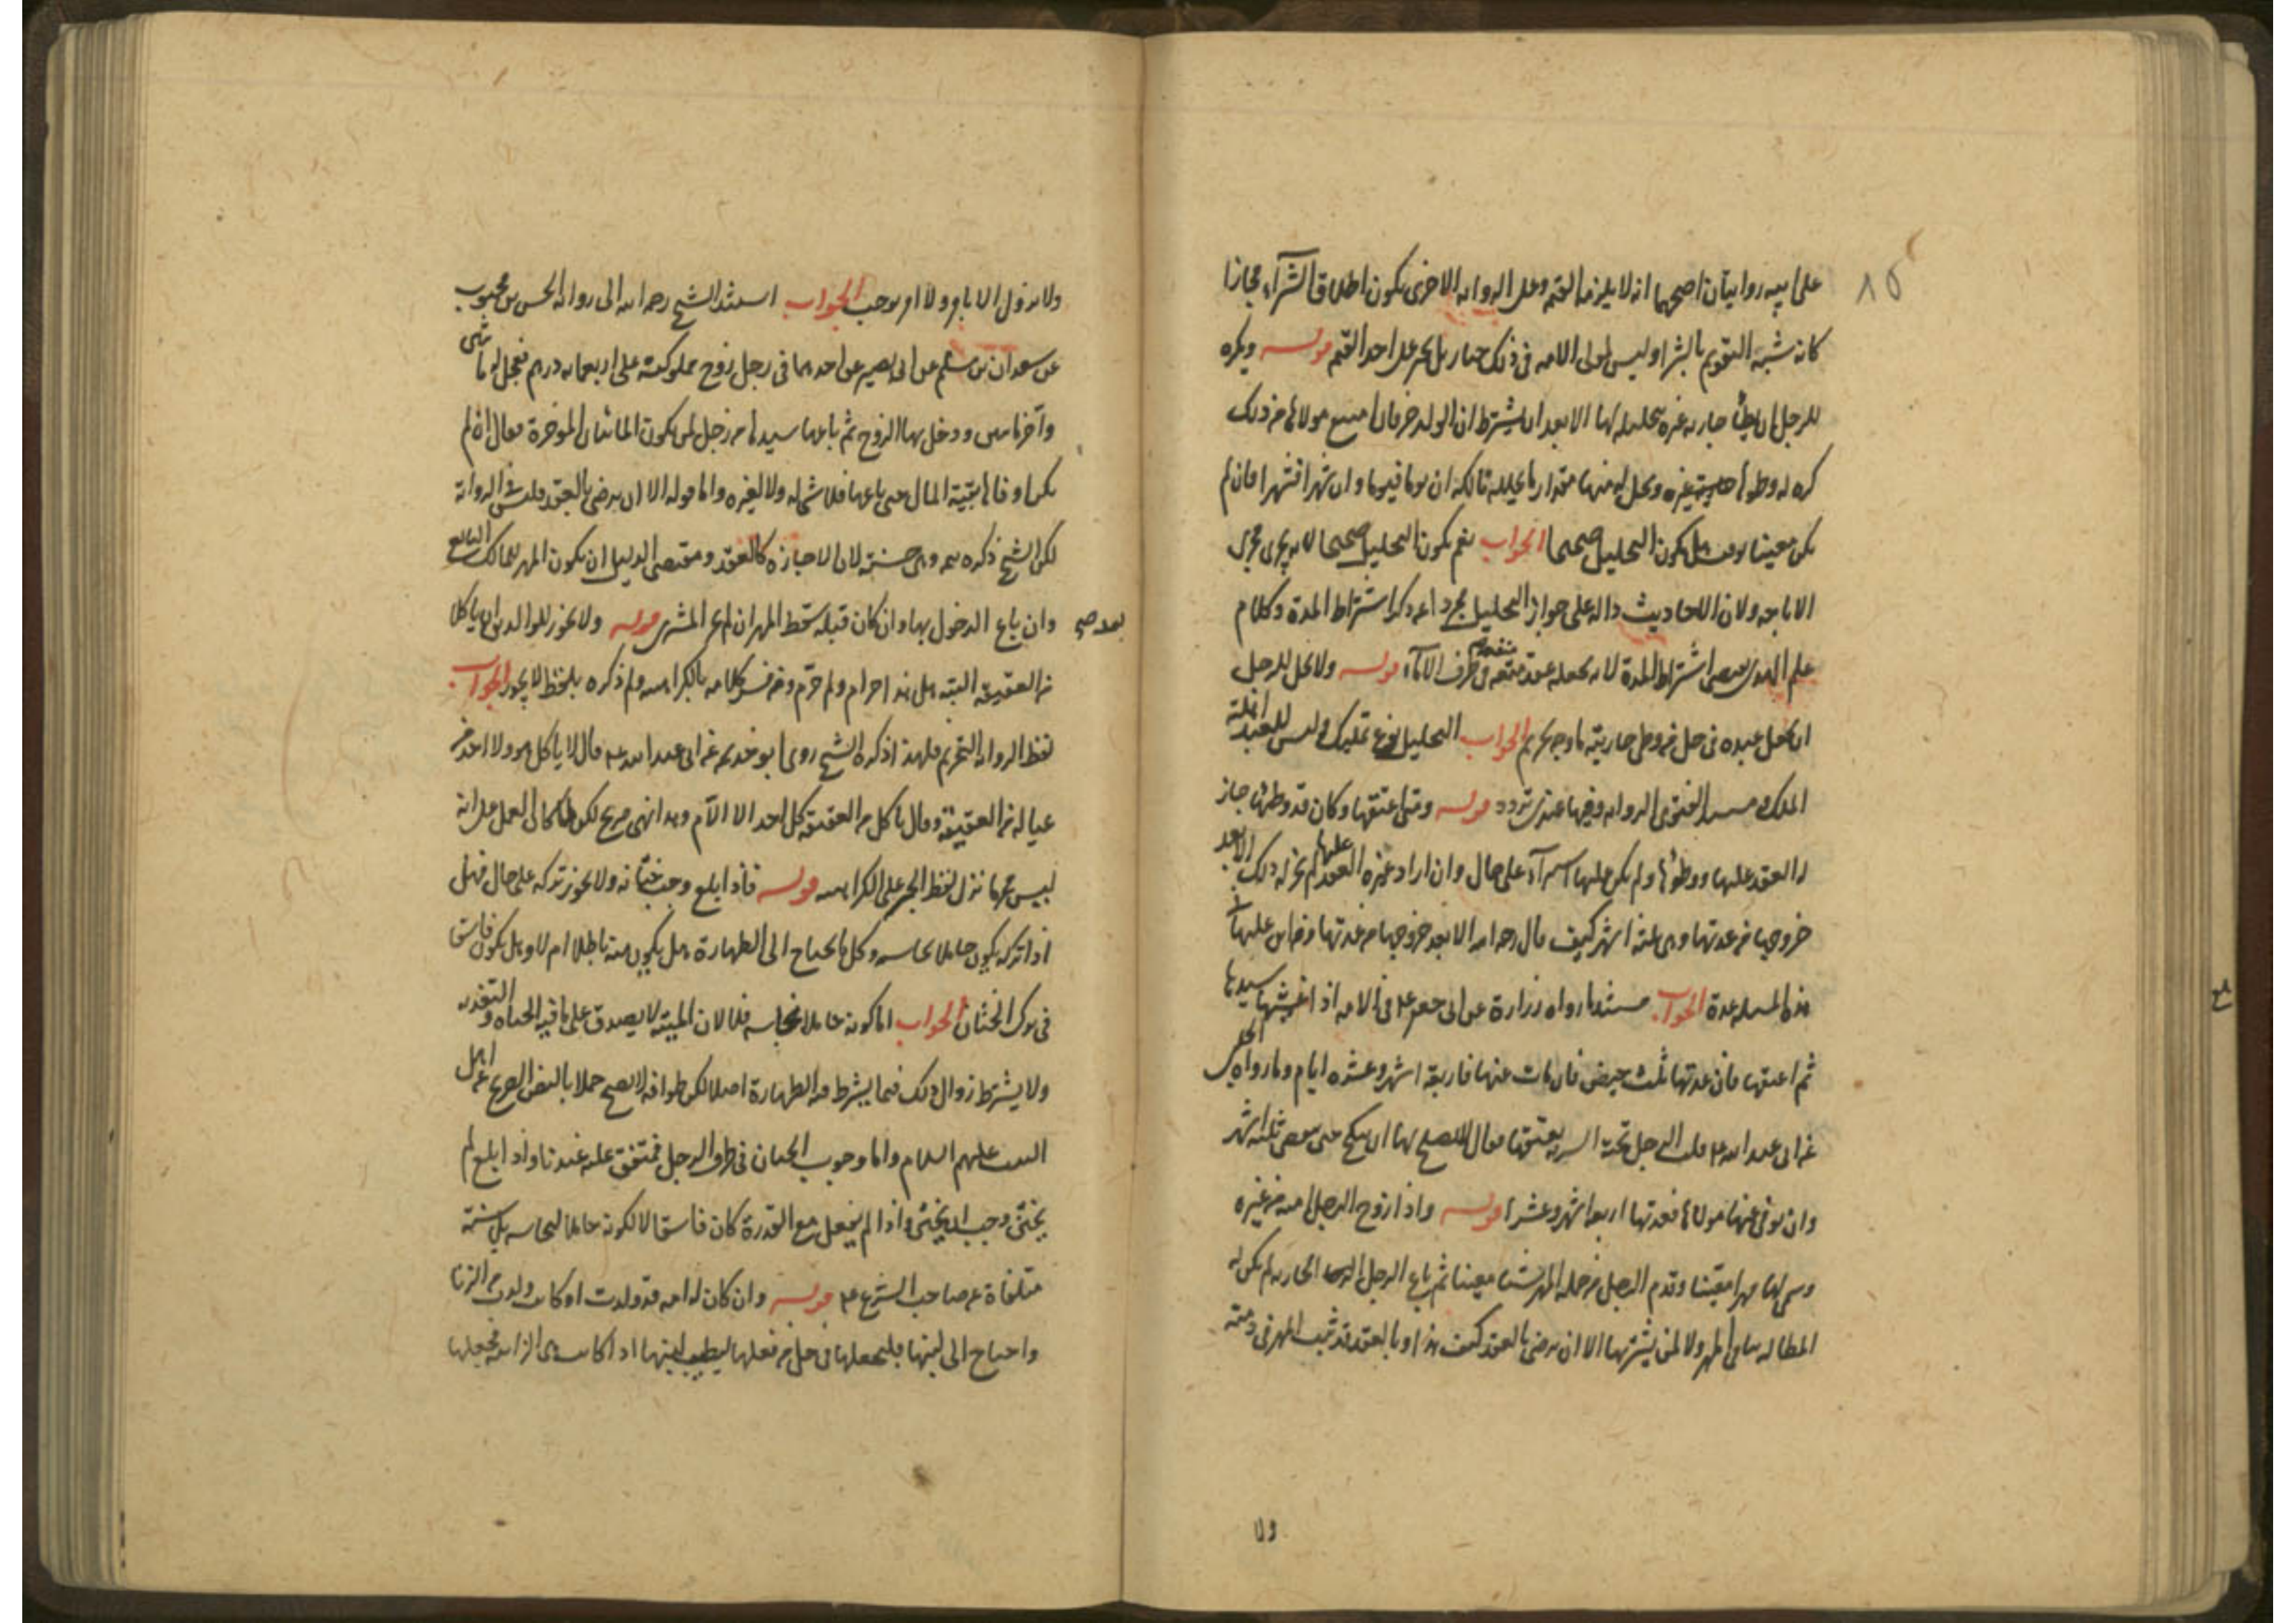 على ابيه روايتان اصحهما انه لا يلزمه القيمة وعلى الرواية الاخرى يكون اطلاق الشرآء مجازا
كانه شبه التقويم بالشرا وليس لمولى الامه في ذلك خيار بل يجبر على اخذ القيمه قوله ويكره
للرجل ان يطأ جاريه غيره بتحليله لها الا بعد ان يشترط ان الولد حر فان امتنع مولاها من ذلك
كره له وطؤها غيره ويحل له منها مقدار ما يحلله مالكه ان يوما فيوما وان شهرا فشهرا فان لم
يكن معينا بوقت هل يكون التحليل صحيحا الجواب نعم يكون التحليل صحيحا لانه يجري مجرى
الاباحه ولان الاحاديث داله على جواز التحليل مجردا عن ذكر اشتراط المدة وكلام
علم الهدى يقتضي اشتراط المدة لانه يجعله عقد متعه في طرف الامآء قوله ولا يحل للرجل
ان يجعل عبده في حل من وطي جاريته ما وجه تحريم الجواب التحليل نوع تمليك وليس للعبد اهلية
الملك ومستند الفتوى الروايه وفيها عندي تردد قوله ومتى اعتقها وكان قد وطئها جاز
له العقد عليها ووطؤها ولم يكن عليها استبرآء على حال وان اراد غيره العقد عليها لم يجز له ذلك الا بعد
خروجها من عدتها وهي ثلثه اشهر كيف قال رحمه الله الا بعد خروجها من عدتها ومن اين عليها
هذه المسله عدة الجواب مستند ما رواه زرارة عن ابي جعفر ع في الامه اذا غشيها سيدها
ثم اعتقها فان عدتها ثلث حيض فان مات عنها فاربعة اشهر وعشره ايام وما رواه الحلبي
عن ابي عبد الله ع قلت الرجل تحته السريه يعتقها فقال لا يصلح لها ان تنكح حتى تمضي ثلثه اشهر
وان توفي عنها مولاها فعدتها اربعة اشهر وعشرا قوله واذا زوج الرجل امته من غيره
وسمى لها مهرا معينا وقدم الرجل من جمله المهر شيئا معينا ثم باع الرجل الجاريه لم يكن له
المطالبه بباقي المهر ولا لمن يشتريها الا ان يرضى بالعقد كيف هذا وبالعقد قد ثبت المهر في ذمته
ولا
ولا يزول الا بابراء ولا امر يوجب الجواب استند الشيخ رحمه الله الى رواية الحسن بن محبوب
عن سعدان بن مسلم عن ابي بصير عن احدهما في رجل زوج مملوكته على اربعمايه درهم فعجل له مائتي
واخر مائتين ودخل بها الزوج ثم باعها سيدها من رجل لمن يكون المائتان المؤخرة فقال ان لم
يكن اوفاها بقية المال حتى باعها فلا شي له ولا لغيره واما قوله الا ان يرضى بالعقد فليس في الرواية
لكن الشيخ ذكره وهي حسنة لان الاجازة كالعقد ومقتضى الدليل ان يكون المهر للمالك البايع
وان باع الدخول بها وان كان قبله سقط المهر ان لم يجز المشتري قوله ولا يجوز للوالدين ان ياكلا
بعد صح
من العقيقه البتة هل هذا حرام ولم حرم وقد فسر كلامه بالكراهيه ولم ذكره بلفظ لا يجوز الجواب
لفظ الروايه التحريم فلهذا ذكره الشيخ روى ابو خديجه عن ابي عبد الله ع قال لا ياكل هو ولا احد من
عياله من العقيقة وقال ياكل من العقيقه كل احد الا الام وهذا نهي صريح لكن لما كان العمل على انه
ليس محرما نزل لفظ الخبر على الكراهيه قوله فاذا بلغ وجب ختانه ولا يجوز تركه على حال فهل
اذا تركه يكون حاملا نجاسه وكل ما يحتاج الى الطهارة هل يكون منه باطلا ام لا وهل يكون فاسقا
في ترك الختان الجواب اما كونه حاملا نجاسه فلا لان الميته لا يصدق على ما فيه الحياه والتغذيه
ولا يشترط زوال ذلك فيما يشترط فيه الطهارة اصلا لكن طوافه لا يصح عملا بالنص الصريح عن اهل
البيت عليهم السلام واما وجوب الختان في طرف الرجل فمتفق عليه عندنا واذا بلغ لم
يختن وجب ان يختن واذا لم يفعل مع القدرة كان فاسقا لا لكونه حاملا لنجاسه بل سنة
متلقاة عن صاحب الشرع ع قوله وان كان له امه قد ولدت او كانت ولدت من الزنا
واحتاج الى لبنها فليجعلها في حل من فعلها ليطيب لبنها اذا كانت هي الزانيه فجعلها